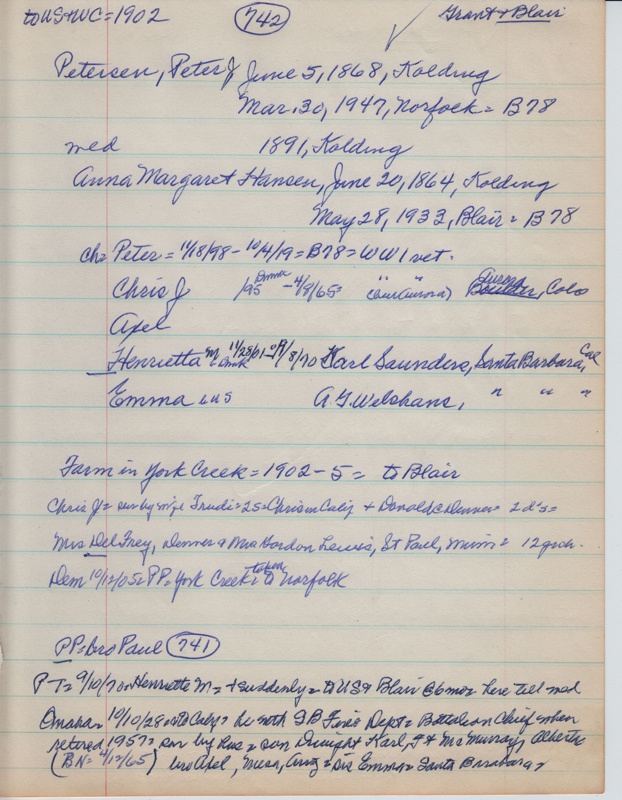 to US + WC = 1902 742 Grant + Blair
Petersen, Peter J June 5, 1868, Kolding
Mar. 30, 1947, Norfolk = B78
med 1891, Kolding
Anna Margaret Hansen, June 20, 1864, Kolding
May 28, 1933, Blair = B78
ch = Peter = 11/18/98 - 10/4/19 = B78 = WW1 vet.
Chris J /95 Dmk - 4/8/65 = " " (bur Aurora) Aurora Boulder, Colo
Axel
Henrietta M 11/28/01 Dmk 9/8/70 Karl Saunders, Santa Barbara, Cal
Emma in US A. G. Welshans, " " "
Farm in York Creek = 1902 - 5 = to Blair
Chris J = sur by wife Trudi = 2s = Chris in Calif + Donald C Denver = 2 d's =
Mrs Del Frey, Denver + Mrs Gordon Lewis, St Paul, Minn = 12 gch.
Dem 10/12/05 = PP = York Creek to Norfolk
PP = bro Paul 741
P-T = 9/10/70 = Henrietta M = + suddenly = to US + Blair @ 6 mos = here till med
Omaha = 10/10/28 = to Calif = he with SB Fire Dept = Battalion Chief when
retired 1957 = sur by hus = son Dwight Karl, Ft Mc Murray, Alberta
(BN = 4/12/65) bro Axel, Mesa, Ariz = sis Emma = Santa Barbara =